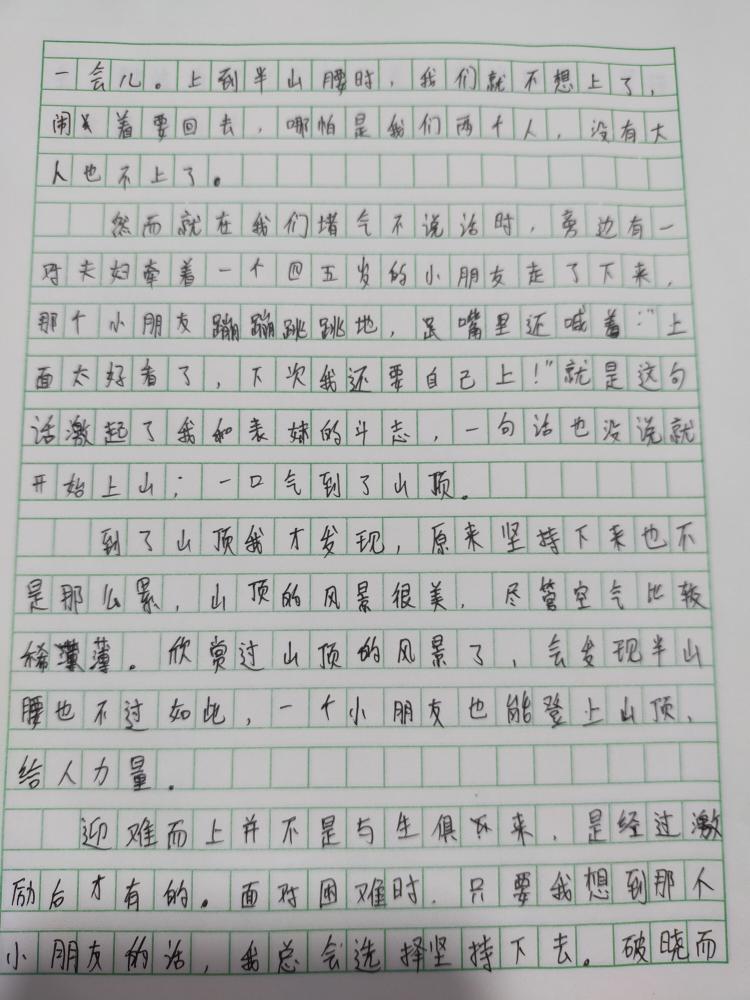 一会儿。上到半山腰时，我们就不想上了，
闹着要回去，哪怕是我们两个人，没有大
人也不上了。
然而就在我们堵气不说话时，旁边有一
对夫妇牵着一个四五岁的小朋友走了下来，
那个小朋友蹦蹦跳跳地，嘴里还喊着："上
面太好看了，下次我还要自己上！"就是这句
话激起了我和表妹的斗志，一句话也没说就
开始上山；一口气到了山顶。
到了山顶我才发现，原来坚持下来也不
是那么累，山顶的风景很美，尽管空气比较
稀薄。欣赏过山顶的风景了，会发现半山
腰也不过如此，一个小朋友也能登上山顶，
给人力量。
迎难而上并不是与生俱来，是经过激
励后才有的。面对困难时，只要我想到那个
小朋友的话，我总会选择坚持下去。破晓而